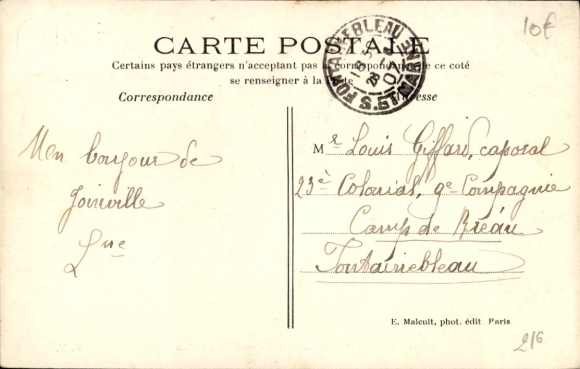 10€
CARTE POSTALE
Certains pays étrangers n'acceptant pas la correspondance de ce coté
se renseigner à la Poste
Correspondance
Adresse
FONTAINEBLEAU
S. ET MARNE
Mon bonjour de
Joinville
Mr Louis Giffard, caporal
23è Colonial, 9e Compagnie
Camp de Bréau
Fontainebleau
E. Malcuit, phot. édit. Paris
2/6